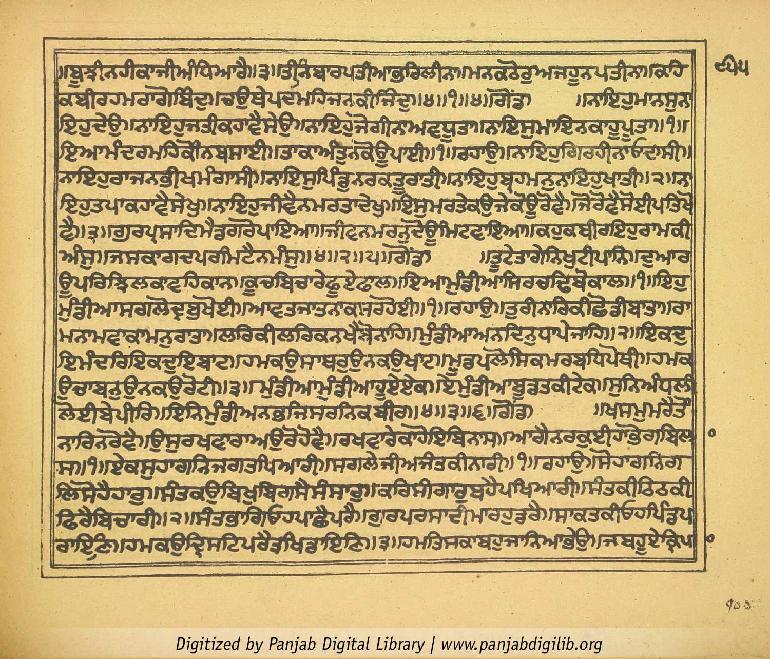 ॥ਬੂਝੀਨਹੀਕਾਜੀਅੰਧਿਆਰੈ॥੩॥ਤੀਨਿਬਾਰਪਤੀਆਭਰਿਲੀਨਾ॥ਮਨਕਠੋਰੁਅਜਹੂਨਪਤੀਨਾ॥ਕਹਿ
ਕਬੀਰਹਮਰਾਗੋਬਿੰਦੁ॥ਚਉਥੇਪਦਮਹਿਜਨਕੀਜਿੰਦੁ॥੪॥੧॥੪॥ਗੋਂਡ॥ ॥ਨਾਇਹੁਮਾਨਸੁਨ
ਇਹੁਦੇਉ॥ਨਾਇਹੁਜਤੀਕਹਾਵੈਸੇਉ॥ਨਾਇਹੁਜੋਗੀਨਾਅਵਧੂਤਾ॥ਨਾਇਸੁਮਾਇਨਕਾਹੂਪੂਤਾ॥੧॥
ਇਆਮੰਦਰਮਹਿਕੌਨਬਸਾਈ॥ਤਾਕਾਅੰਤੁਨਕੋਊਪਾਈ॥੧॥ਰਹਾਉ॥ਨਾਇਹੁਗਿਰਹੀਨਾਓਦਾਸੀ॥
ਨਾਇਹੁਰਾਜਨਭੀਖਮੰਗਾਸੀ॥ਨਾਇਸੁਪਿੰਡੁਨਰਕਤੂਰਾਤੀ॥ਨਾਇਹੁਬ੍ਰਹਮਨੁਨਾਇਹੁਖਾਤੀ॥੨॥ਨਾ
ਇਹੁਤਪਾਕਹਾਵੈਸੇਖੁ॥ਨਾਇਹੁਜੀਵੈਨਮਰਤਾਦੇਖੁ॥ਇਸੁਮਰਤੇਕਉਜੇਕੋਊਰੋਵੈ॥ਜੋਰੋਵੈਸੋਈਪਤਿਖੋ
ਵੈ॥੩॥ਗੁਰਪ੍ਰਸਾਦਿਮੈਡਗਰੋਪਾਇਆ॥ਜੀਵਨਮਰਨੁਦੋਊਮਿਟਵਾਇਆ॥ਕਹੁਕਬੀਰਇਹੁਰਾਮਕੀ
ਅੰਸੁ॥ਜਸਕਾਗਦਪਰਮਿਟੈਨਮੰਸੁ॥੪॥੨॥੫॥ਗੋਂਡ॥ ॥ਤੂਟੇਤਾਗੇਨਿਖੁਟੀਪਾਨਿ॥ਦੁਆਰ
ਊਪਰਿਝਿਲਕਾਵਹਿਕਾਨ॥ਕੂਚਬਿਚਾਰੇਫੂਏਫਾਲ॥ਇਆਮੁੰਡੀਆਸਿਰਚਢਿਬੋਕਾਲ॥੧॥ਇਹੁ
ਮੁੰਡੀਆਸਗਲੋਦ੍ਰਬੁਖੋਈ॥ਆਵਤਜਾਤਨਾਕਸਰਹੋਈ॥੧॥ਰਹਾਉ॥ਤੁਰੀਨਾਰਿਕੀਛੋਡੀਬਾਤਾ॥ਰਾ
ਮਨਾਮਵਾਕਾਮਨੁਰਾਤਾ॥ਲਰਿਕੀਲਰਿਕਨਖੈਬੋਨਾਹਿ॥ਮੁੰਡੀਆਅਨਦਿਨੁਧਾਪੇਜਾਹਿ॥੨॥ਇਕਦੁ
ਇਮੰਦਰਿਇਕਦੁਇਬਾਟ॥ਹਮਕਉਸਾਥਰੁਉਨਕਉਖਾਟ॥ਮੂਡਪਲੋਸਿਕਮਰਬਧਿਪੋਥੀ॥ਹਮਕ
ਉਚਾਬਨੁਉਨਕਉਰੋਟੀ॥੩॥ਮੁੰਡੀਆਮੁੰਡੀਆਹੂਏਏਕ॥ਏਮੁੰਡੀਆਬੂਡਤਕੀਟੇਕ॥ਸੁਨਿਅੰਧਲੀ
ਲੋਈਬੇਪੀਰਿ॥ਇਨਿਮੁੰਡੀਅਨਭਜਿਸਰਨਿਕਬੀਰ॥੪॥੩॥੬॥ਗੋਂਡ॥ ॥ਖਸਮੁਮਰੈਤਉ
ਨਾਰਿਨਰੋਵੈ॥ਉਸੁਰਖਵਾਰਾਅਉਰੋਹੋਵੈ॥ਰਖਵਾਰੇਕਾਹੋਇਬਿਨਾਸ॥ਆਗੈਨਰਕੁਈਹਾਭੋਗਬਿਲਾ
ਸ॥੧॥ਏਕਸੁਹਾਗਨਿਜਗਤਪਿਆਰੀ॥ਸਗਲੇਜੀਅਜੰਤਕੀਨਾਰੀ॥੧॥ਰਹਾਉ॥ਸੋਹਾਗਨਿਗ
ਲਿਸੋਹੈਹਾਰੁ॥ਸੰਤਕਉਬਿਖੁਬਿਗਸੈਸੰਸਾਰੁ॥ਕਰਿਸੀਗਾਰੁਬਹੈਪਖਿਆਰੀ॥ਸੰਤਕੀਠਿਠਕੀ
ਫਿਰੈਬਿਚਾਰੀ॥੨॥ਸੰਤਭਾਗਿਓਹਪਾਛੈਪਰੈ॥ਗੁਰਪਰਸਾਦੀਮਾਰਹੁਡਰੈ॥ਸਾਕਤਕੀਓਹਪਿੰਡਪ
ਰਾਇਣਿ॥ਹਮਕਉਦ੍ਰਿਸਟਿਪਰੈਤ੍ਰਖਿਡਾਇਣਿ॥੩॥ਹਮਤਿਸਕਾਬਹੁਜਾਨਿਆਭੇਉ॥ਜਬਹੂਏਕ੍ਰਿਪ
Digitized by Panjab Digital Library | www.panjabdigilib.org